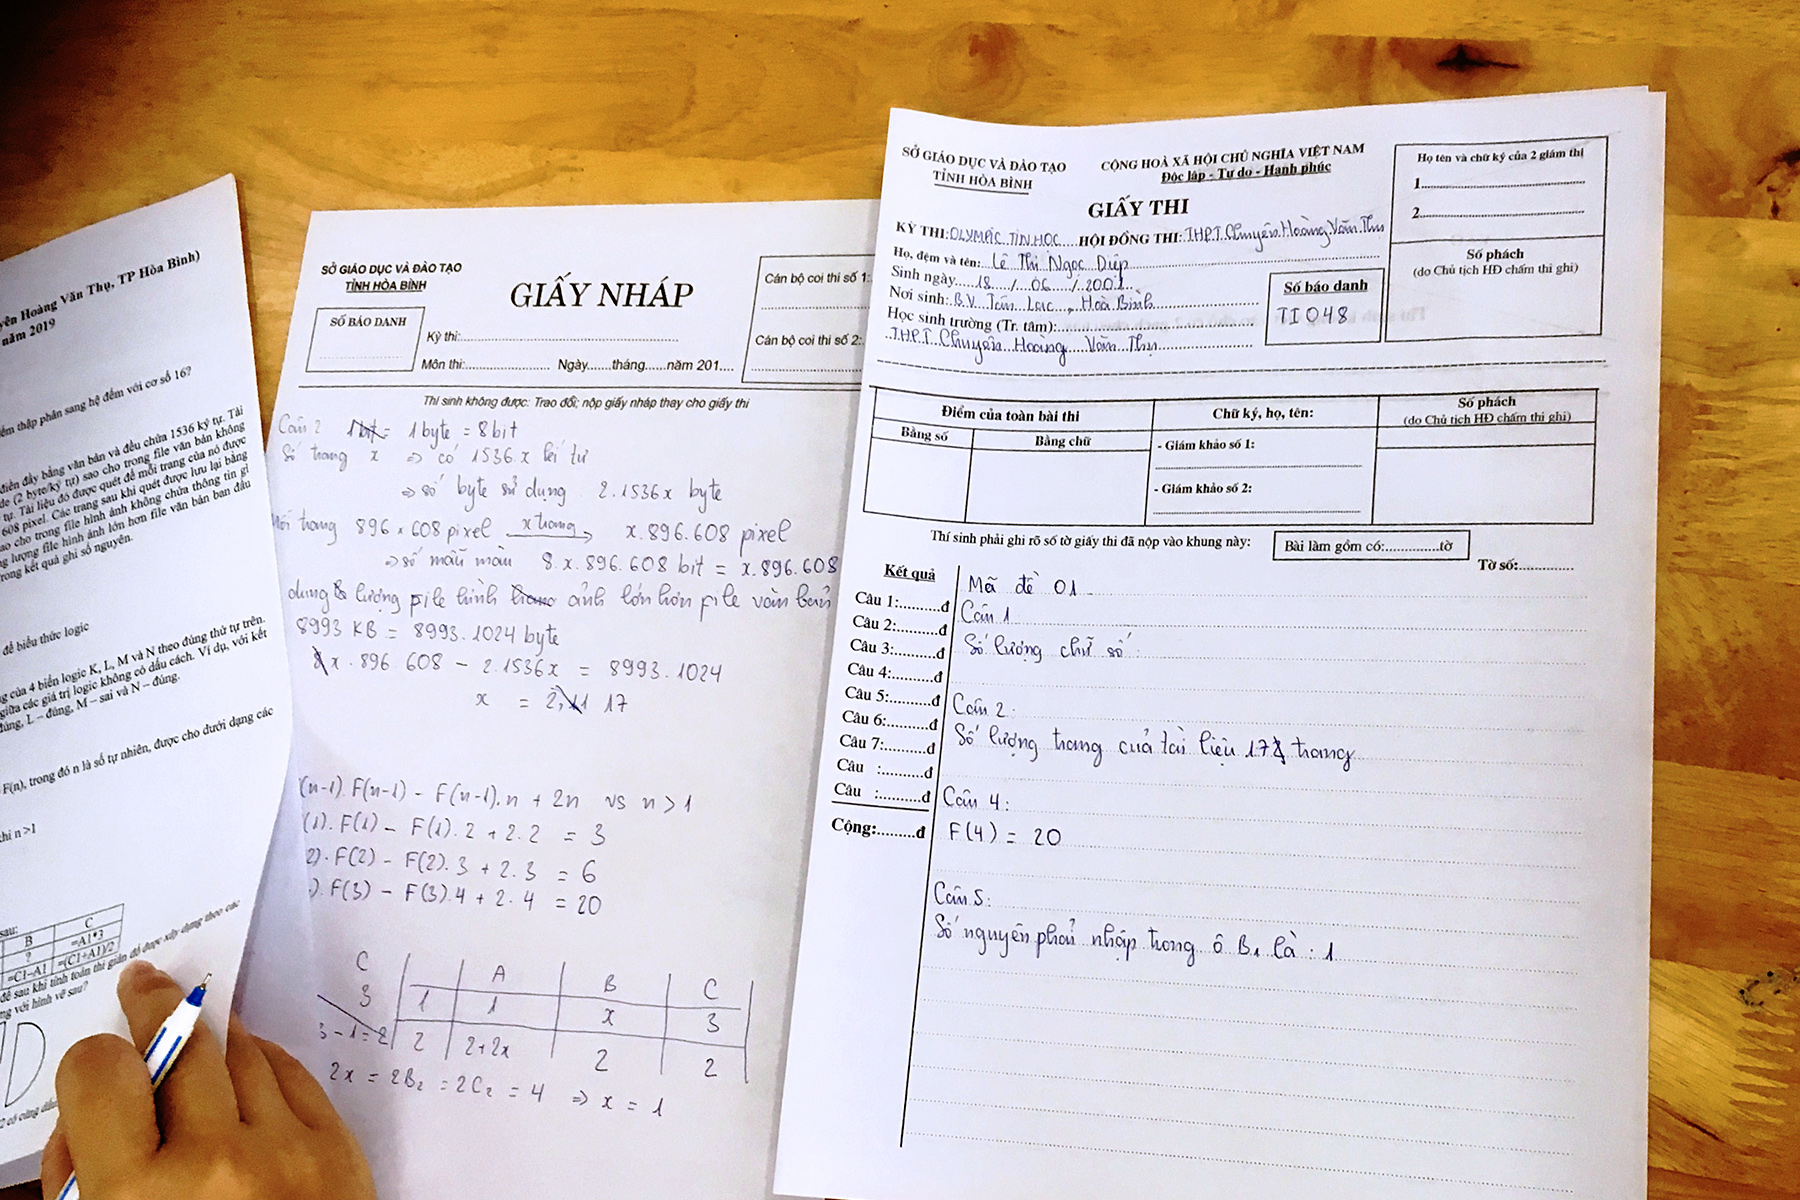 yên Hoàng Văn Thụ, TP Hòa Bình)
năm 2019
ếm thập phân sang hệ đếm với cơ số 16?
điền đầy bằng văn bản và đều chứa 1536 ký tự. Tài
de (2 byte/ký tự) sao cho trong file văn bản không
tự. Tài liệu đó được quét để mỗi trang của nó được
608 pixel. Các trang sau khi quét được lưu lại bằng
ao cho trong file hình ảnh không chứa thông tin gì
g lượng file hình ảnh lớn hơn file văn bản ban đầu
rong kết quả ghi số nguyên.
để biểu thức logic
g của 4 biến logic K, L, M và N theo đúng thứ tự trên.
giữa các giá trị logic không có dấu cách. Ví dụ, với kết
đúng, L – đúng, M – sai và N – đúng.
F(n), trong đó n là số tự nhiên, được cho dưới dạng các
hi n >1
sau:
B C
? =A1*3
=C1-A1 =(C1+A1)/2
đề sau khi tính toán thì giản đồ được xây dựng theo các
ng với hình vẽ sau?
SỞ GIÁO DỤC VÀ ĐÀO TẠO
TỈNH HÒA BÌNH
GIẤY NHÁP
SỐ BÁO DANH
Kỳ thi:
Môn thi: Ngày......tháng......năm 201....
Cán bộ coi thi số 1:
Cán bộ coi thi số 2:
Thí sinh không được: Trao đổi; nộp giấy nháp thay cho giấy thi
Câu 2 1bit = 1 byte = 8 bit
Số trang x => có 1536.x kí tự
=> số byte sử dụng 2.1536x byte
trang 896 x 608 pixel x trang x.896.608 pixel
=> số mẫu màu 8.x.896.608 bit = x.896.608
dung lượng file hình ảnh lớn hơn file văn bản
8993 KB = 8993.1024 byte
x.896.608 - 2.1536x = 8993.1024
x = 17
(n-1).F(n-1) - F(n-1).n + 2n vs n > 1
(1).F(1) - F(1).2 + 2.2 = 3
2).F(2) - F(2).3 + 2.3 = 6
).F(3) - F(3).4 + 2.4 = 20
C A B C
3 1 1 x 3
3 - 1 = 2 2 2+2x 2 2
2x = 2B2 = 2C2 = 4 => x = 1
SỞ GIÁO DỤC VÀ ĐÀO TẠO
TỈNH HÒA BÌNH
CỘNG HOÀ XÃ HỘI CHỦ NGHĨA VIỆT NAM
Độc lập - Tự do - Hạnh phúc
GIẤY THI
KỲ THI: OLYMPIC TIN HỌC HỘI ĐỒNG THI: THPT Chuyên Hoàng Văn Thụ
Họ, đệm và tên: Lê Thị Ngọc Diệp
Sinh ngày 18 / 06 / 2001
Nơi sinh: B.V Tân Lạc, Hoà Bình
Học sinh trường (Tr. tâm):
THPT Chuyên Hoàng Văn Thụ
Số báo danh
TI048
Họ tên và chữ ký của 2 giám thị
1
2
Số phách
(do Chủ tịch HĐ chấm thi ghi)
Điểm của toàn bài thi
Bằng số Bằng chữ
Chữ ký, họ, tên:
- Giám khảo số 1:
- Giám khảo số 2:
Số phách
(do Chủ tịch HĐ chấm thi ghi)
Thí sinh phải ghi rõ số tờ giấy thi đã nộp vào khung này:
Bài làm gồm có:.............tờ
Tờ số:.............
Kết quả
Câu 1:..........đ
Câu 2:..........đ
Câu 3:..........đ
Câu 4:..........đ
Câu 5:..........đ
Câu 6:..........đ
Câu 7:..........đ
Câu :..........đ
Câu :..........đ
Cộng:.........đ
Mã đề 01
Câu 1
Số lượng chữ số:
Câu 2:
Số lượng trang của tài liệu 17 trang
Câu 4:
F(4) = 20
Câu 5:
Số nguyên phải nhập trong ô B1 là: 1